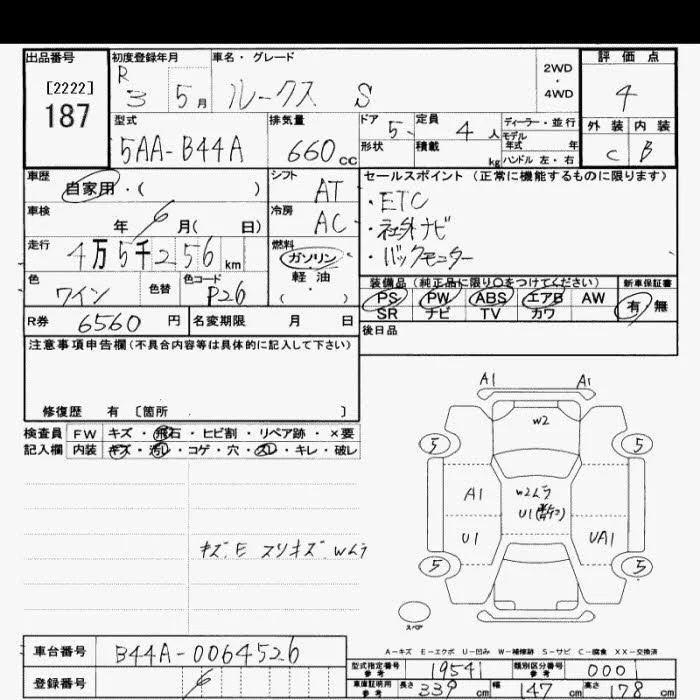 出品番号
[2222]
187
初度登録年月
R
3 5月
車名・グレード
ルークス S
2WD
・
4WD
評価点
4
外装 内装
C B
型式
5AA-B44A
排気量
660cc
ドア 5
形状
定員 4人
積載 kg
ディーラー・並行
モデル
年式 年
ハンドル 左・右
車歴
自家用・( )
シフト
AT
車検
年 6月( 日)
冷房
AC
走行
4万5千256km
燃料
ガソリン
軽油
( )
色
ワイン
色替
色コード
P26
セールスポイント(正常に機能するものに限ります)
・ETC
・社外ナビ
・バックモニター
装備品(純正品に限り○をつけてください)
PS PW ABS エアB AW
SR ナビ TV カワ
新車保証書
有 無
R券 6560円
名変期限 月 日
後日品
注意事項申告欄(不具合内容等は具体的に記入して下さい)
修復歴 有 [箇所 ]
検査員
記入欄
FW キズ・飛石・ヒビ割・リペア跡・×要
内装 キズ・汚レ・コゲ・穴・スレ・キレ・破レ
キズ、E スリキズ Wムラ
A1 A1
W2
5 5
A1
W2ムラ
U1
U1 UA1
5 5
スペア
A-キズ E-エクボ U-凹み W-補修跡 S-サビ C-腐食 XX-交換済
車台番号 B44A-0064526
登録番号
型式指定番号
参考
19541
類別区分番号
参考
000
車庫証明用
参考
長さ 339cm
幅 147cm
高さ 178cm